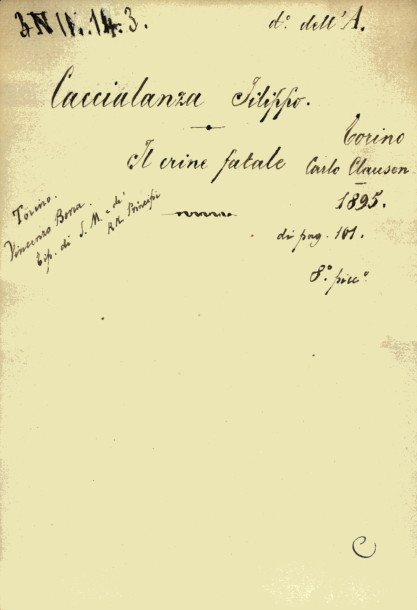 3 N IV. 14. 3.
d.º dell'A.
Caccialanza Filippo.
Il crine fatale
Torino
Carlo Clausen
1895.
di pag. 101.
8.º picc.º
Torino.
Vincenzo Bona.
Tip. di S. M. e de'
RR. Principi
C